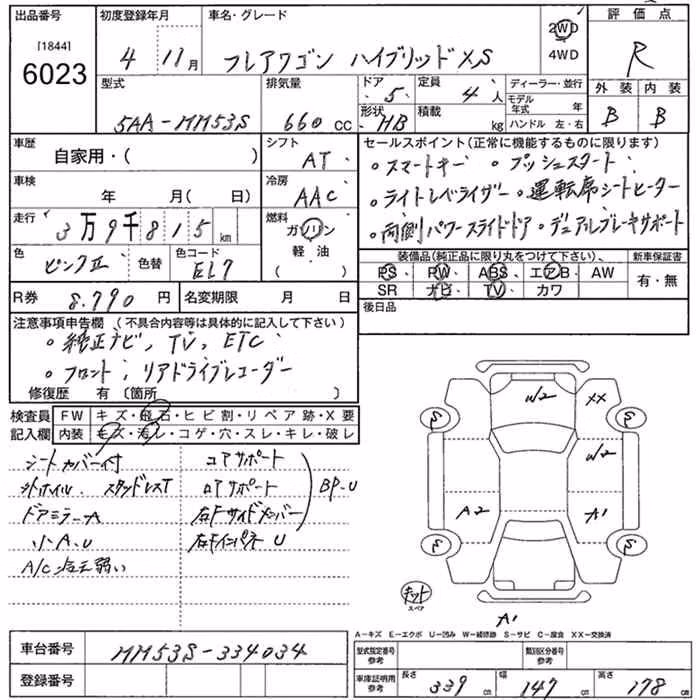 出品番号
[1844]
6023
初度登録年月
4 11月
車名・グレード
フレアワゴン ハイブリッドXS
2WD
4WD
評価点
R
外装 内装
B B
型式
5AA-MM53S
排気量
660cc
ドア
5
形状
HB
定員
4人
積載
kg
ディーラー・並行
モデル年式 年
ハンドル 左・右
車歴
自家用・( )
シフト
AT
車検
年 月( 日)
冷房
AAC
走行
3万9千815km
燃料
ガソリン
軽油
( )
色
ピンクII
色替
色コード
EL7
R券 8,790円
名変期限 月 日
セールスポイント(正常に機能するものに限ります)
。スマートキー 。プッシュスタート
。ライトレベライザー 。運転席シートヒーター
。両側パワースライドドア 。デュアルブレーキサポート
装備品(純正品に限り丸をつけて下さい)、
PS・ PW・ ABS・ エアB・ AW
SR ナビ・ TV・ カワ
新車保証書
有・無
後日品
注意事項申告欄 (不具合内容等は具体的に記入して下さい)
。純正ナビ, TV, ETC
。フロント, リアドライブレコーダー
修復歴 有 [箇所 ]
検査員記入欄
FW キズ・飛石・ヒビ割・リペア跡・X要
内装 キズ・汚レ・コゲ・穴・スレ・キレ・破レ
シートカバー付
外ホイル スタッドレスT
ドアミラーA
小A.U
A/C 冷え弱い
コアサポート
ロアサポート
右Fサイドメンバー
右Fインパネ U
BP.U
W2
XX
W2
A2
A1
S
S
S
S
キット
スペア
A1
A-キズ E-エクボ U-凹み W-補修跡 S-サビ C-腐食 XX-交換済
車台番号
MM53S-334034
登録番号
型式指定番号参考
類別区分番号参考
車庫証明用参考
長さ 339cm
幅 147cm
高さ 178cm